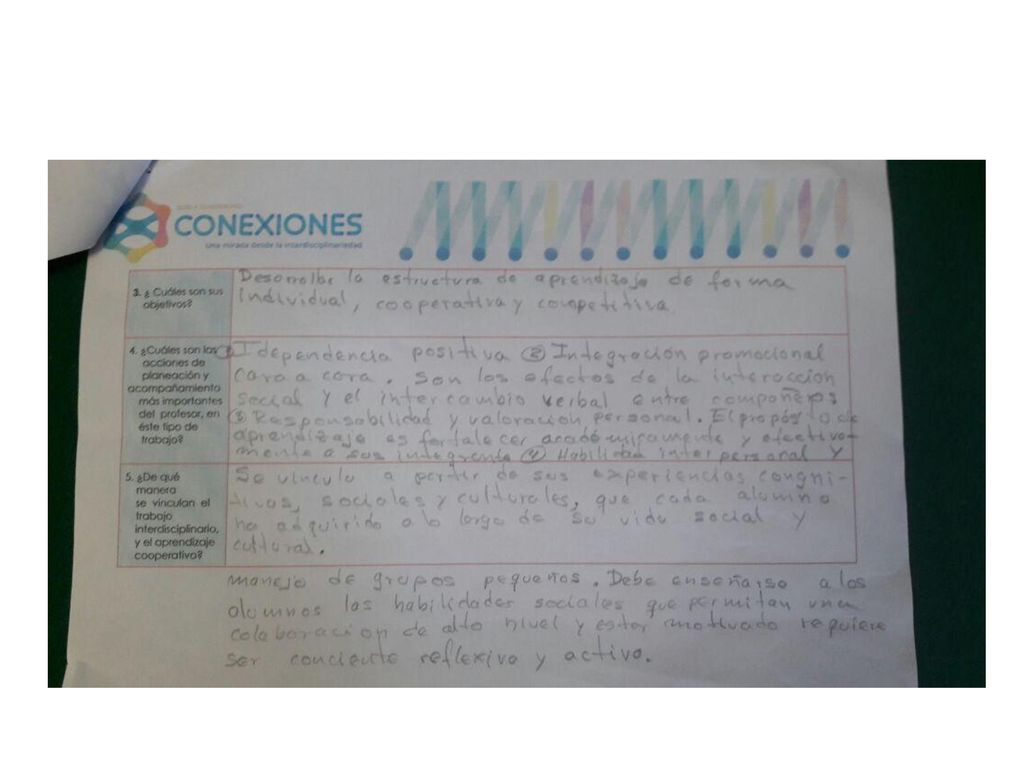 CONEXIONES
Una mirada desde la interdisciplinariedad
3. ¿ Cuáles son sus
objetivos?
Desarrollar la estructura de aprendizaje de forma
individual, cooperativa y competitiva.
4. ¿Cuáles son las
acciones de
planeación y
acompañamiento
más importantes
del profesor, en
éste tipo de
trabajo?
① Idependencia positiva ② Integración promocional
Cara a cara. Son los efectos de la interaccion
social y el intercambio verbal entre compañeros
③ Responsabilidad y valoración personal. El proposito de
aprendizaje es fortalecer académicamente y efectiva-
mente a sus integrante ④ Habilidad interpersonal y
5. ¿De qué
manera
se vinculan el
trabajo
interdisciplinario,
y el aprendizaje
cooperativo?
Se vincula a partir de sus experiencias congni-
tivas, sociales y culturales, que cada alumno
ha adquirido a lo largo de su vida social y
cultural.
manejo de grupos pequeños. Debe enseñarse a los
alumnos las habilidades sociales que permitan una
colaboracion de alto nivel y estar motivado requiere
ser conciente reflexivo y activo.